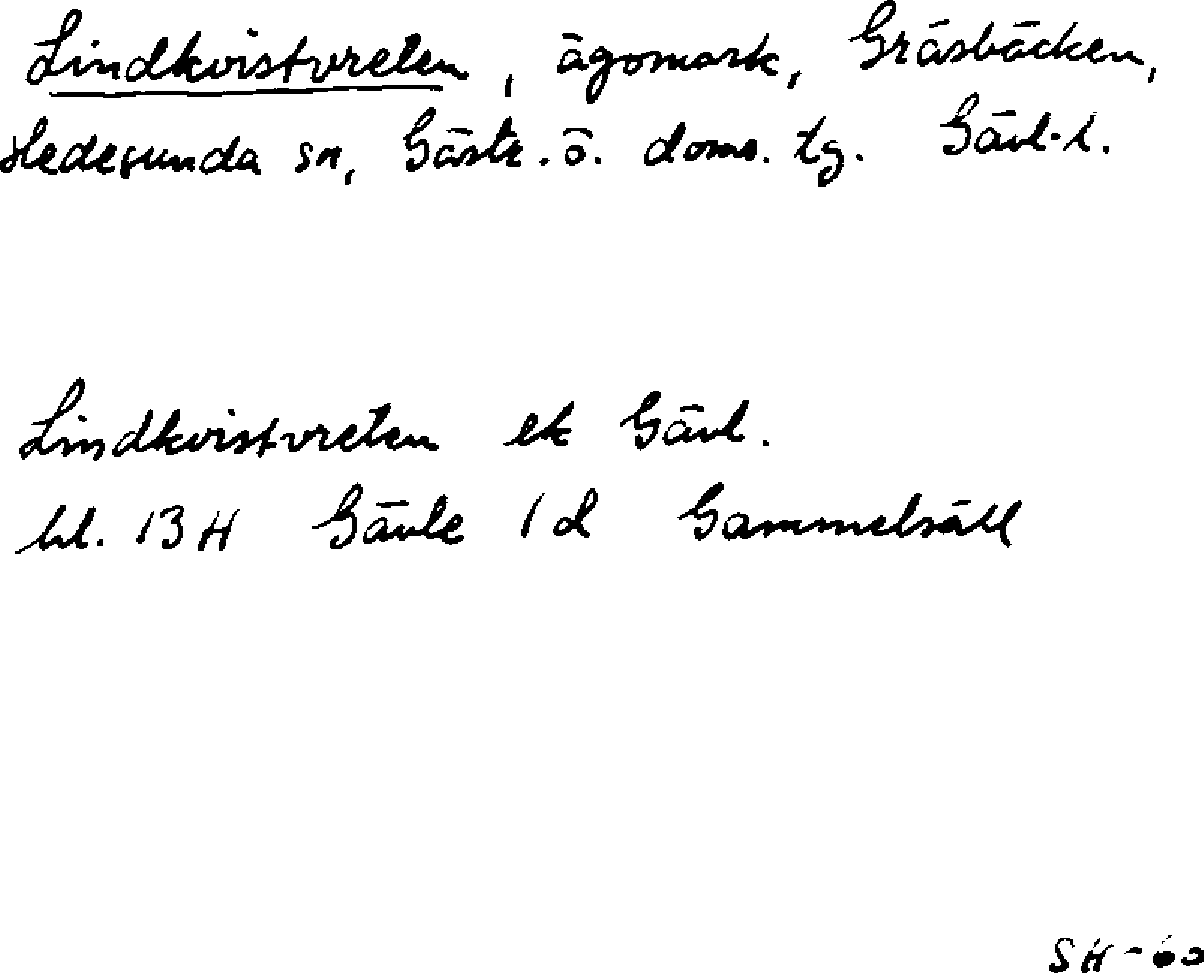 Lindkvistvreten, ägomark, Gräsbäcken,
Hedesunda sn, Gästr. ö. doms. tg. Gävl. l.
Lindkvistvreten ek Gävl.
bl. 13 H Gävle 1 d Gammelsäll
SH-60